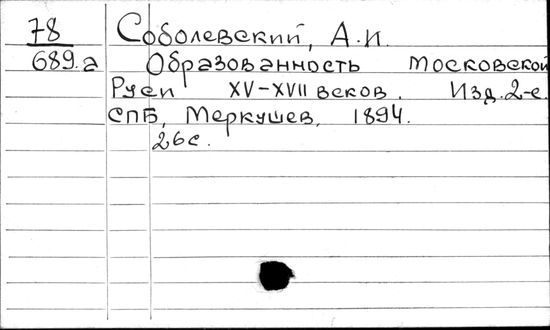 78 Соболевский, А.И.
689.а Образованность Московской
Руси XV-XVII веков. Изд. 2-е.
СПБ, Меркушев, 1894.
26с.